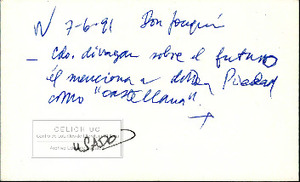 7-6-91 Don Joaquín
— Cdo. divagan sobre el futuro
él menciona a doña Piedad
como "castellana".
CELICH UC
USADO